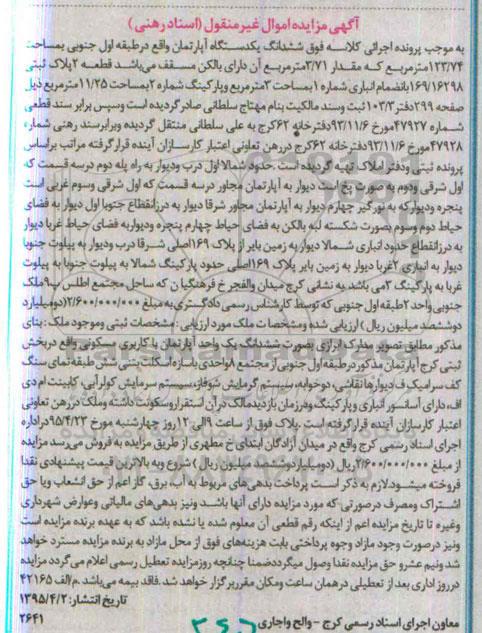 آگهی مزایده اموال غیرمنقول (اسناد رهنی)
به موجب پرونده اجرائی کلاسه فوق ششدانگ یکدستگاه آپارتمان واقع درطبقه اول جنوبی بمساحت
۱۲۳/۷۴مترمربع که مقدار ۳/۷۱مترمربع آن دارای بالکن مسقف می‌باشد قطعه ۲پلاک ثبتی
۱۶۹/۱۶۲۹۸بانضمام انباری شماره ۱بمساحت ۳مترمربع وپارکینگ شماره ۲بمساحت ۱۱/۲۵مترمربع ذیل
صفحه ۲۹۹دفتر۱۰۳/۳ثبت وسند مالکیت بنام مهتاج سلطانی صادرگردیده است وسپس برابر سند قطعی
شماره ۴۷۹۲۷مورخ ۹۳/۱۱/۶دفترخانه ۶۲کرج به علی سلطانی منتقل گردیده وبرابرسند رهنی شماره
۴۷۹۲۸مورخ ۹۳/۱۱/۶ دفترخانه ۶۲کرج دررهن تعاونی اعتبار کارسازان آینده قرارگرفته مراتب براساس
پرونده ثبتی ودفتر املاک تهیه گردیده است .حدود:شمالا اول درب ودیوار به راه پله دوم درسه قسمت که
اول شرقی ودوم به صورت پخ است دیوار به آپارتمان مجاور درسه قسمت که اول شرقی وسوم غربی است
پنجره ودیوارکه به نورگیر چهارم دیوار به آپارتمان مجاور شرقا دیوار به درزانقطاع جنوبا اول دیوار به فضای
حیاط دوم وسوم بصورت شکسته لبه بالکن به فضای حیاط چهارم پنجره ودیواربه فضای حیاط غربا دیوار
به درزانقطاع حدود انباری شمالا دیوار به زمین بایر از پلاک ۱۶۹اصلی شرقا درب ودیوار به پیلوت جنوبا
دیوار به انباری ۲غربا دیوار به زمین بایر پلاک ۱۶۹اصلی حدود پارکینگ شمالا به پیلوت جنوبا به پیلوت
غربا به پارکینگ ۳می باشد.به نشانی کرج میدان والفجر خ فرهنگیان که ساحل مجتمع اطلس پ۹ملک
جنوبی واحد ۲طبقه اول جنوبی که توسط کارشناس رسمی دادگستری به مبلغ ۲/۶۰۰/۰۰۰/۰۰۰(دومیلیارد
دوششصد میلیون ریال) ارزیابی شده ومشخصات ملک مورد ارزیابی : مشخصات ثبتی وموجود ملک : بنای
مذکور مطابق تصویر مدارک ابرازی بصورت ششدانگ یک واحد آپارتمان با کاربری مسکونی واقع دربخش
ثبتی کرج آپارتمان مذکور درطبقه اول جنوبی از مجتمع ۸واحدی باسازه اسکلت بتنی شش طبقه نمای سنگ
کف سرامیک ف دیوارها نقاشی، دوخوابه،سیستم گرمایش شوفاژ،سیستم سرمایش کولرآبی، کابینت ام دی
اف،دارای آسانسور انباری وپارکینگ ودرزمان بازدیدمالک درآن استقراروسکونت داشته وملک دررهن تعاونی
اعتبار کارسازان آینده قرارگرفته است .پلاک فوق از ساعت ۹الی ۱۲روز چهارشنبه مورخ ۹۵/۴/۲۳دراداره
اجرای اسناد رسمی کرج واقع در میدان آزادگان ابتدای خ مطهری از طریق مزایده به فروش می‌رسد مزایده
از مبلغ ۲/۶۰۰/۰۰۰/۰۰۰ریال (دومیلیاردوششصد میلیون ریال) شروع وبه بالاترین قیمت پیشنهادی نقدا
فروخته میشود.لازم به ذکر است پرداخت بدهی‌های مربوط به آب، برق گاز اعم از حق انشعاب ویا حق
اشتراک ومصرف درصورتی که مورد مزایده دارای آنها باشد ونیز بدهی‌های مالیاتی وعوارض شهرداری
وغیره تا تاریخ مزایده اعم از اینکه رقم قطعی آن معلوم شده یا نشده باشد که به عهده برنده مزایده است
ونیز درصورت وجود مازاد وجوه پرداختی بابت هزینه‌های فوق از محل مازاد به برنده مزایده مسترد خواهد
شد ونیم عشرو حق مزایده نقدا وصول میگرددضمنا چنانچه روزمزایده تعطیل رسمی اعلام می‌گردد مزایده
درروز اداری بعد از تعطیلی درهمان ساعت ومکان مقرربرگزار خواهد شد .فاقد بیمه می‌باشد .م/الف ۴۲۱۶۵
تاریخ انتشار: ۱۳۹۵/۴/۲
۲۶۴۱
معاون اجرای اسناد رسمی کرج - والح واجاری